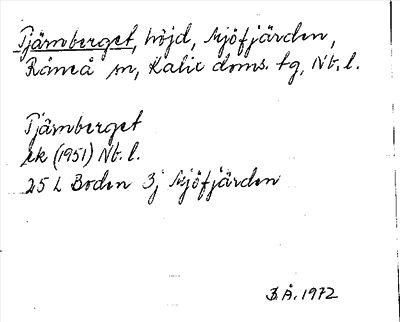 Tjärnberget, höjd, Mjöfjärden,
Råneå sn, Kalix doms. tg, Nb. l.
Tjärnberget
ek (1951) Nb. l.
25 L Boden 3j Mjöfjärden
B.Å. 1972